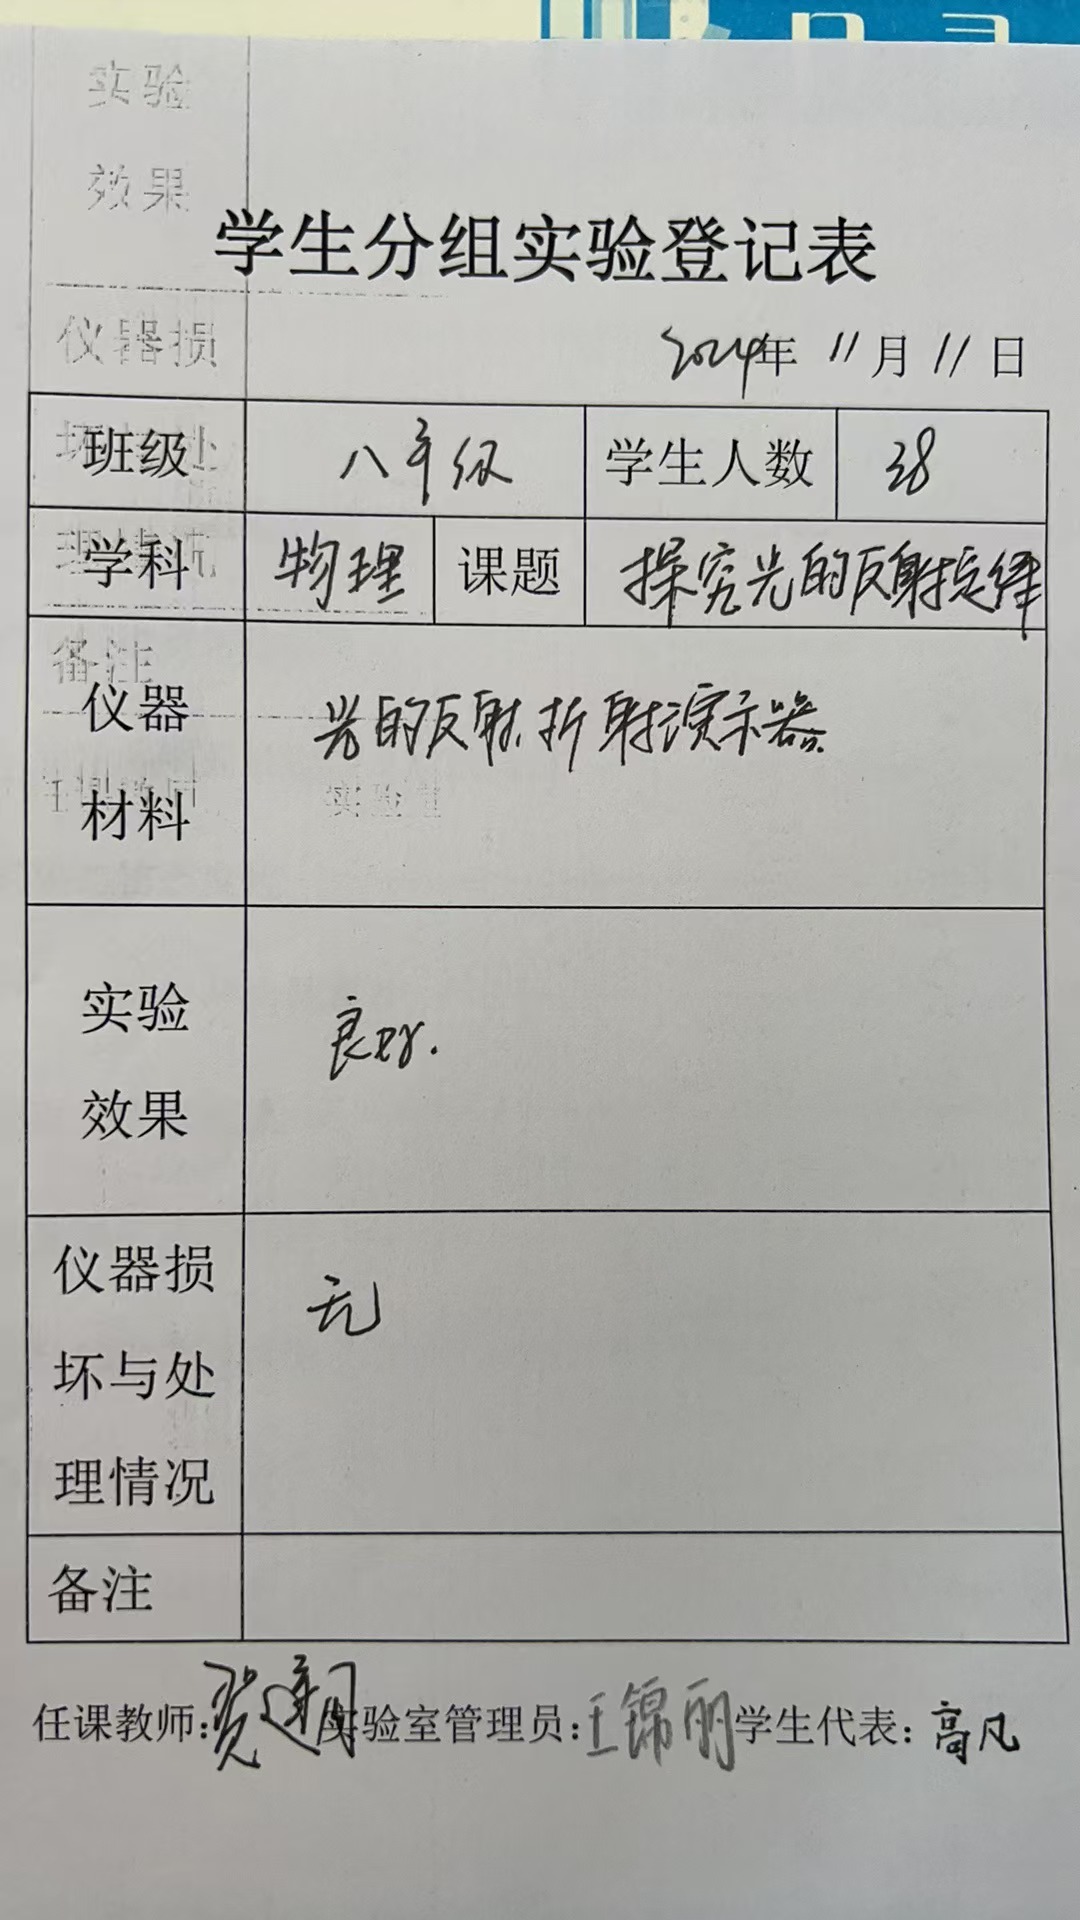 实验
效果
学生分组实验登记表
仪器损
2024年 11月 11日
班级 八年级 学生人数 38
学科 物理 课题 探究光的反射定律
备注
仪器
材料
光的反射.折射演示器
实验
效果
良好.
仪器损
坏与处
理情况
无
备注
任课教师: 实验室管理员:王锦丽 学生代表:高凡